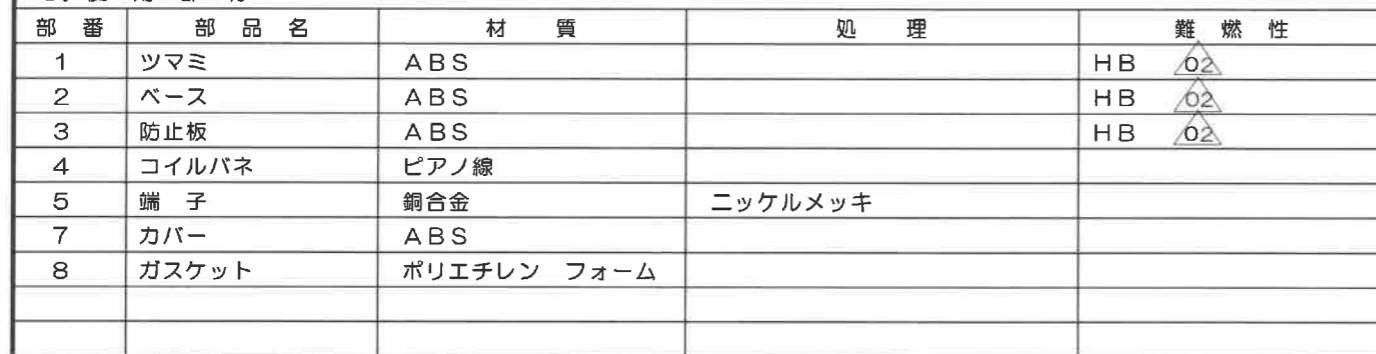 部 番 部 品 名 材 質 処 理 難 燃 性
1 ツマミ ABS HB 02
2 ベース ABS HB 02
3 防止板 ABS HB 02
4 コイルバネ ピアノ線
5 端 子 銅合金 ニッケルメッキ
7 カバー ABS
8 ガスケット ポリエチレン フォーム